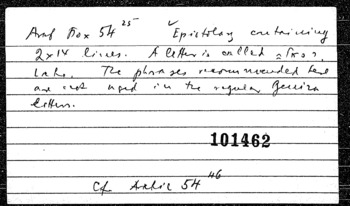 Arab Box 54 25 Epistolog containing
2x14 lines. A letter is called
Late. The phrases recommended here
are not used in the regular Geniza
letters.
101462
Cf Arabic 54 46